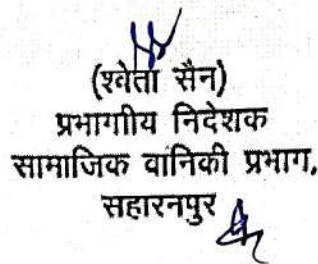 (श्वेता सैन)
प्रभागाीय निदेशक
सामाजिक वानिकी प्रभाग,
सहारनपुर